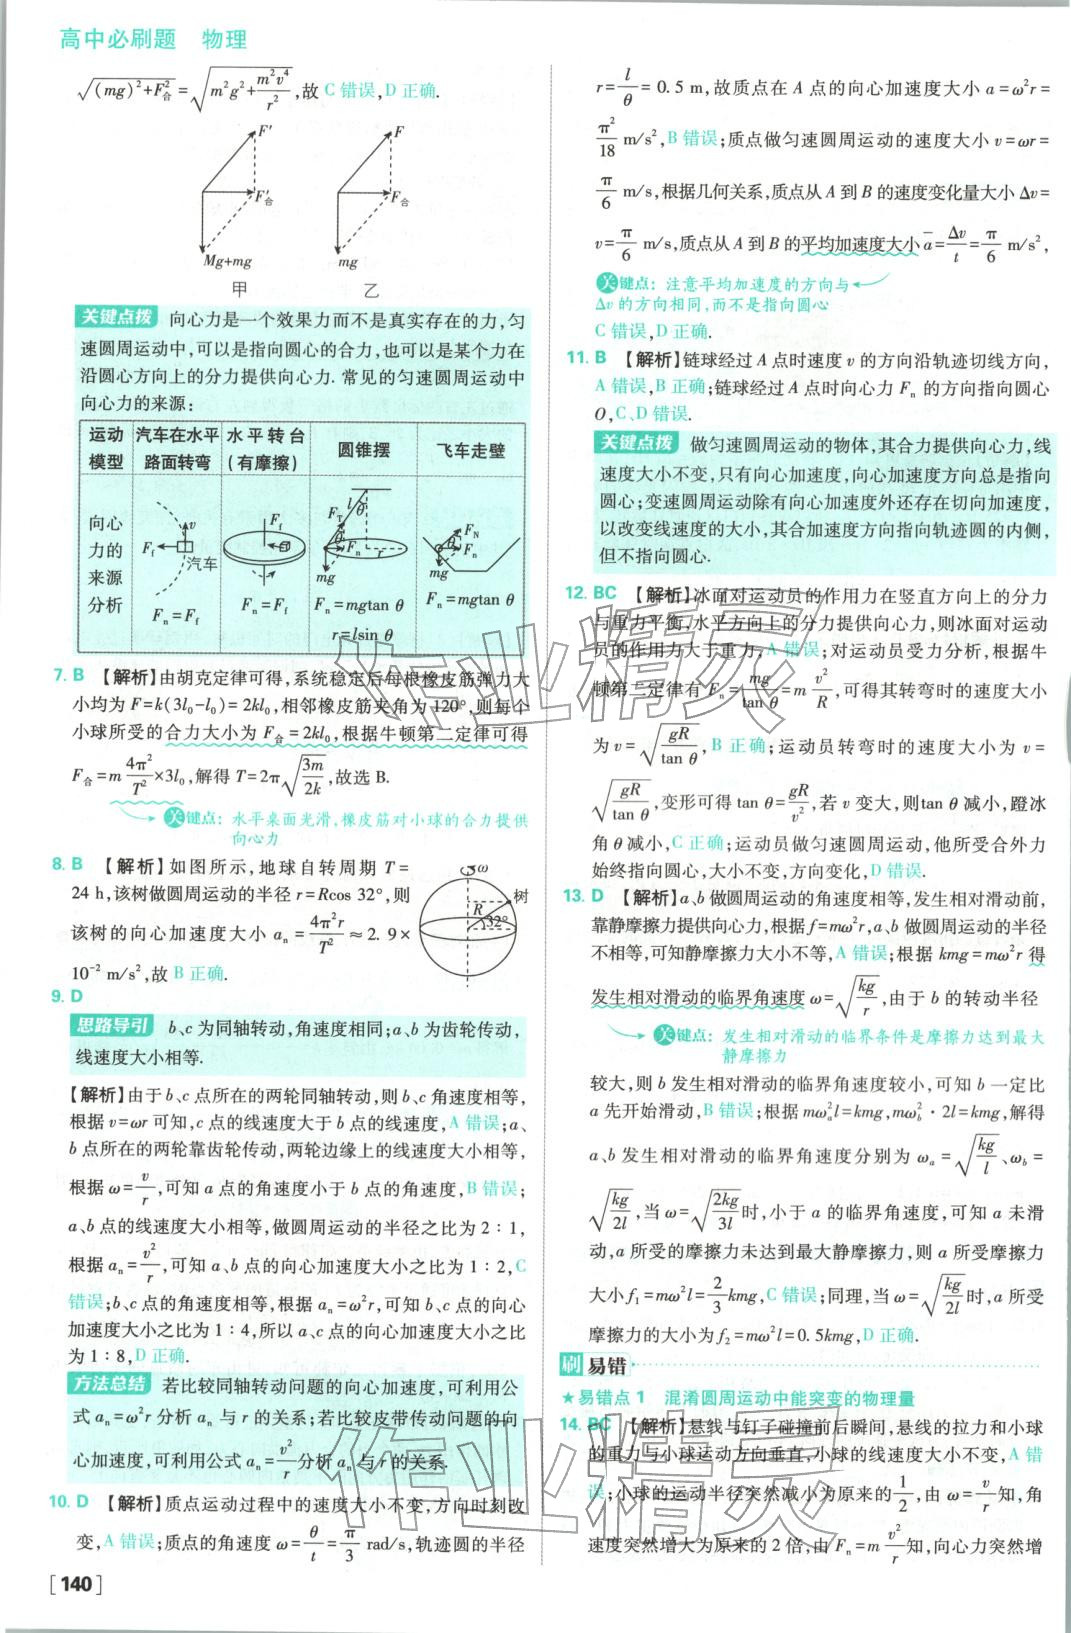 高中必刷题 物理
√((mg)²+F合²)=√(m²g²+m²v⁴/r²),故 C 错误,D 正确.
F′
F′合
Mg+mg
甲
F
F合
mg
乙
关键点拨 向心力是一个效果力而不是真实存在的力,匀
速圆周运动中,可以是指向圆心的合力,也可以是某个力在
沿圆心方向上的分力提供向心力. 常见的匀速圆周运动中
向心力的来源:
运动模型 汽车在水平路面转弯 水平转台(有摩擦) 圆锥摆 飞车走壁
向心力的来源分析
v Ff 汽车 Fn=Ff
Ff Fn=Ff
FT l θ θ Fn r mg Fn=mgtan θ r=lsin θ
FN θ Fn mg Fn=mgtan θ
7. B 【解析】由胡克定律可得,系统稳定后每根橡皮筋弹力大
小均为 F=k(3l₀-l₀)=2kl₀,相邻橡皮筋夹角为 120°,则每个
小球所受的合力大小为 F合=2kl₀,根据牛顿第二定律可得
F合=m 4π²/T²×3l₀,解得 T=2π√(3m/2k),故选 B.
关键点: 水平桌面光滑,橡皮筋对小球的合力提供
向心力
8. B 【解析】如图所示,地球自转周期 T=
24 h,该树做圆周运动的半径 r=Rcos 32°,则
该树的向心加速度大小 aₙ=4π²r/T²≈2.9×
10⁻² m/s²,故 B 正确.
ω
树
R
32°
9. D
思路导引 b、c 为同轴转动,角速度相同;a、b 为齿轮传动,
线速度大小相等.
【解析】由于 b、c 点所在的两轮同轴转动,则 b、c 角速度相等,
根据 v=ωr 可知,c 点的线速度大于 b 点的线速度,A 错误;a、
b 点所在的两轮靠齿轮传动,两轮边缘上的线速度大小相等,
根据 ω=v/r,可知 a 点的角速度小于 b 点的角速度,B 错误;
a、b 点的线速度大小相等,做圆周运动的半径之比为 2∶1,
根据 aₙ=v²/r,可知 a、b 点的向心加速度大小之比为 1∶2,C
错误;b、c 点的角速度相等,根据 aₙ=ω²r,可知 b、c 点的向心
加速度大小之比为 1∶4,所以 a、c 点的向心加速度大小之比
为 1∶8,D 正确.
方法总结 若比较同轴转动问题的向心加速度,可利用公
式 aₙ=ω²r 分析 aₙ 与 r 的关系;若比较皮带传动问题的向
心加速度,可利用公式 aₙ=v²/r 分析 aₙ 与 r 的关系.
10. D 【解析】质点运动过程中的速度大小不变,方向时刻改
变,A 错误;质点的角速度 ω=θ/t=π/3 rad/s,轨迹圆的半径
[140]
r=l/θ=0.5 m,故质点在 A 点的向心加速度大小 a=ω²r=
π²/18 m/s²,B 错误;质点做匀速圆周运动的速度大小 v=ωr=
π/6 m/s,根据几何关系,质点从 A 到 B 的速度变化量大小 Δv=
v=π/6 m/s,质点从 A 到 B 的平均加速度大小 a̅=Δv/t=π/6 m/s²,
关键点: 注意平均加速度的方向与
Δv 的方向相同,而不是指向圆心
C 错误,D 正确.
11. B 【解析】链球经过 A 点时速度 v 的方向沿轨迹切线方向,
A 错误,B 正确;链球经过 A 点时向心力 Fₙ 的方向指向圆心
O,C、D 错误.
关键点拨 做匀速圆周运动的物体,其合力提供向心力,线
速度大小不变,只有向心加速度,向心加速度方向总是指向
圆心;变速圆周运动除有向心加速度外还存在切向加速度,
以改变线速度的大小,其合加速度方向指向轨迹圆的内侧,
但不指向圆心.
12. BC 【解析】冰面对运动员的作用力在竖直方向上的分力
与重力平衡,水平方向上的分力提供向心力,则冰面对运动
员的作用力大于重力,A 错误;对运动员受力分析,根据牛
顿第二定律有 Fₙ=mg/tan θ=m v²/R,可得其转弯时的速度大小
为 v=√(gR/tan θ),B 正确;运动员转弯时的速度大小为 v=
√(gR/tan θ),变形可得 tan θ=gR/v²,若 v 变大,则 tan θ 减小,蹬冰
角 θ 减小,C 正确;运动员做匀速圆周运动,他所受合外力
始终指向圆心,大小不变,方向变化,D 错误.
13. D 【解析】a、b 做圆周运动的角速度相等,发生相对滑动前,
靠静摩擦力提供向心力,根据 f=mω²r,a、b 做圆周运动的半径
不相等,可知静摩擦力大小不等,A 错误;根据 kmg=mω²r 得
发生相对滑动的临界角速度 ω=√(kg/r),由于 b 的转动半径
关键点: 发生相对滑动的临界条件是摩擦力达到最大
静摩擦力
较大,则 b 发生相对滑动的临界角速度较小,可知 b 一定比
a 先开始滑动,B 错误;根据 mωₐ²l=kmg,mω_b²·2l=kmg,解得
a、b 发生相对滑动的临界角速度分别为 ωₐ=√(kg/l)、ω_b=
√(kg/2l),当 ω=√(2kg/3l)时,小于 a 的临界角速度,可知 a 未滑
动,a 所受的摩擦力未达到最大静摩擦力,则 a 所受摩擦力
大小 f₁=mω²l=2/3kmg,C 错误;同理,当 ω=√(kg/2l)时,a 所受
摩擦力的大小为 f₂=mω²l=0.5kmg,D 正确.
刷 易错
★易错点 1 混淆圆周运动中能突变的物理量
14. BC 【解析】悬线与钉子碰撞前后瞬间,悬线的拉力和小球
的重力与小球运动方向垂直,小球的线速度大小不变,A 错
误;小球的运动半径突然减小为原来的1/2,由 ω=v/r知,角
速度突然增大为原来的 2 倍,由 Fₙ=m v²/r知,向心力突然增
作业精灵
作业精灵